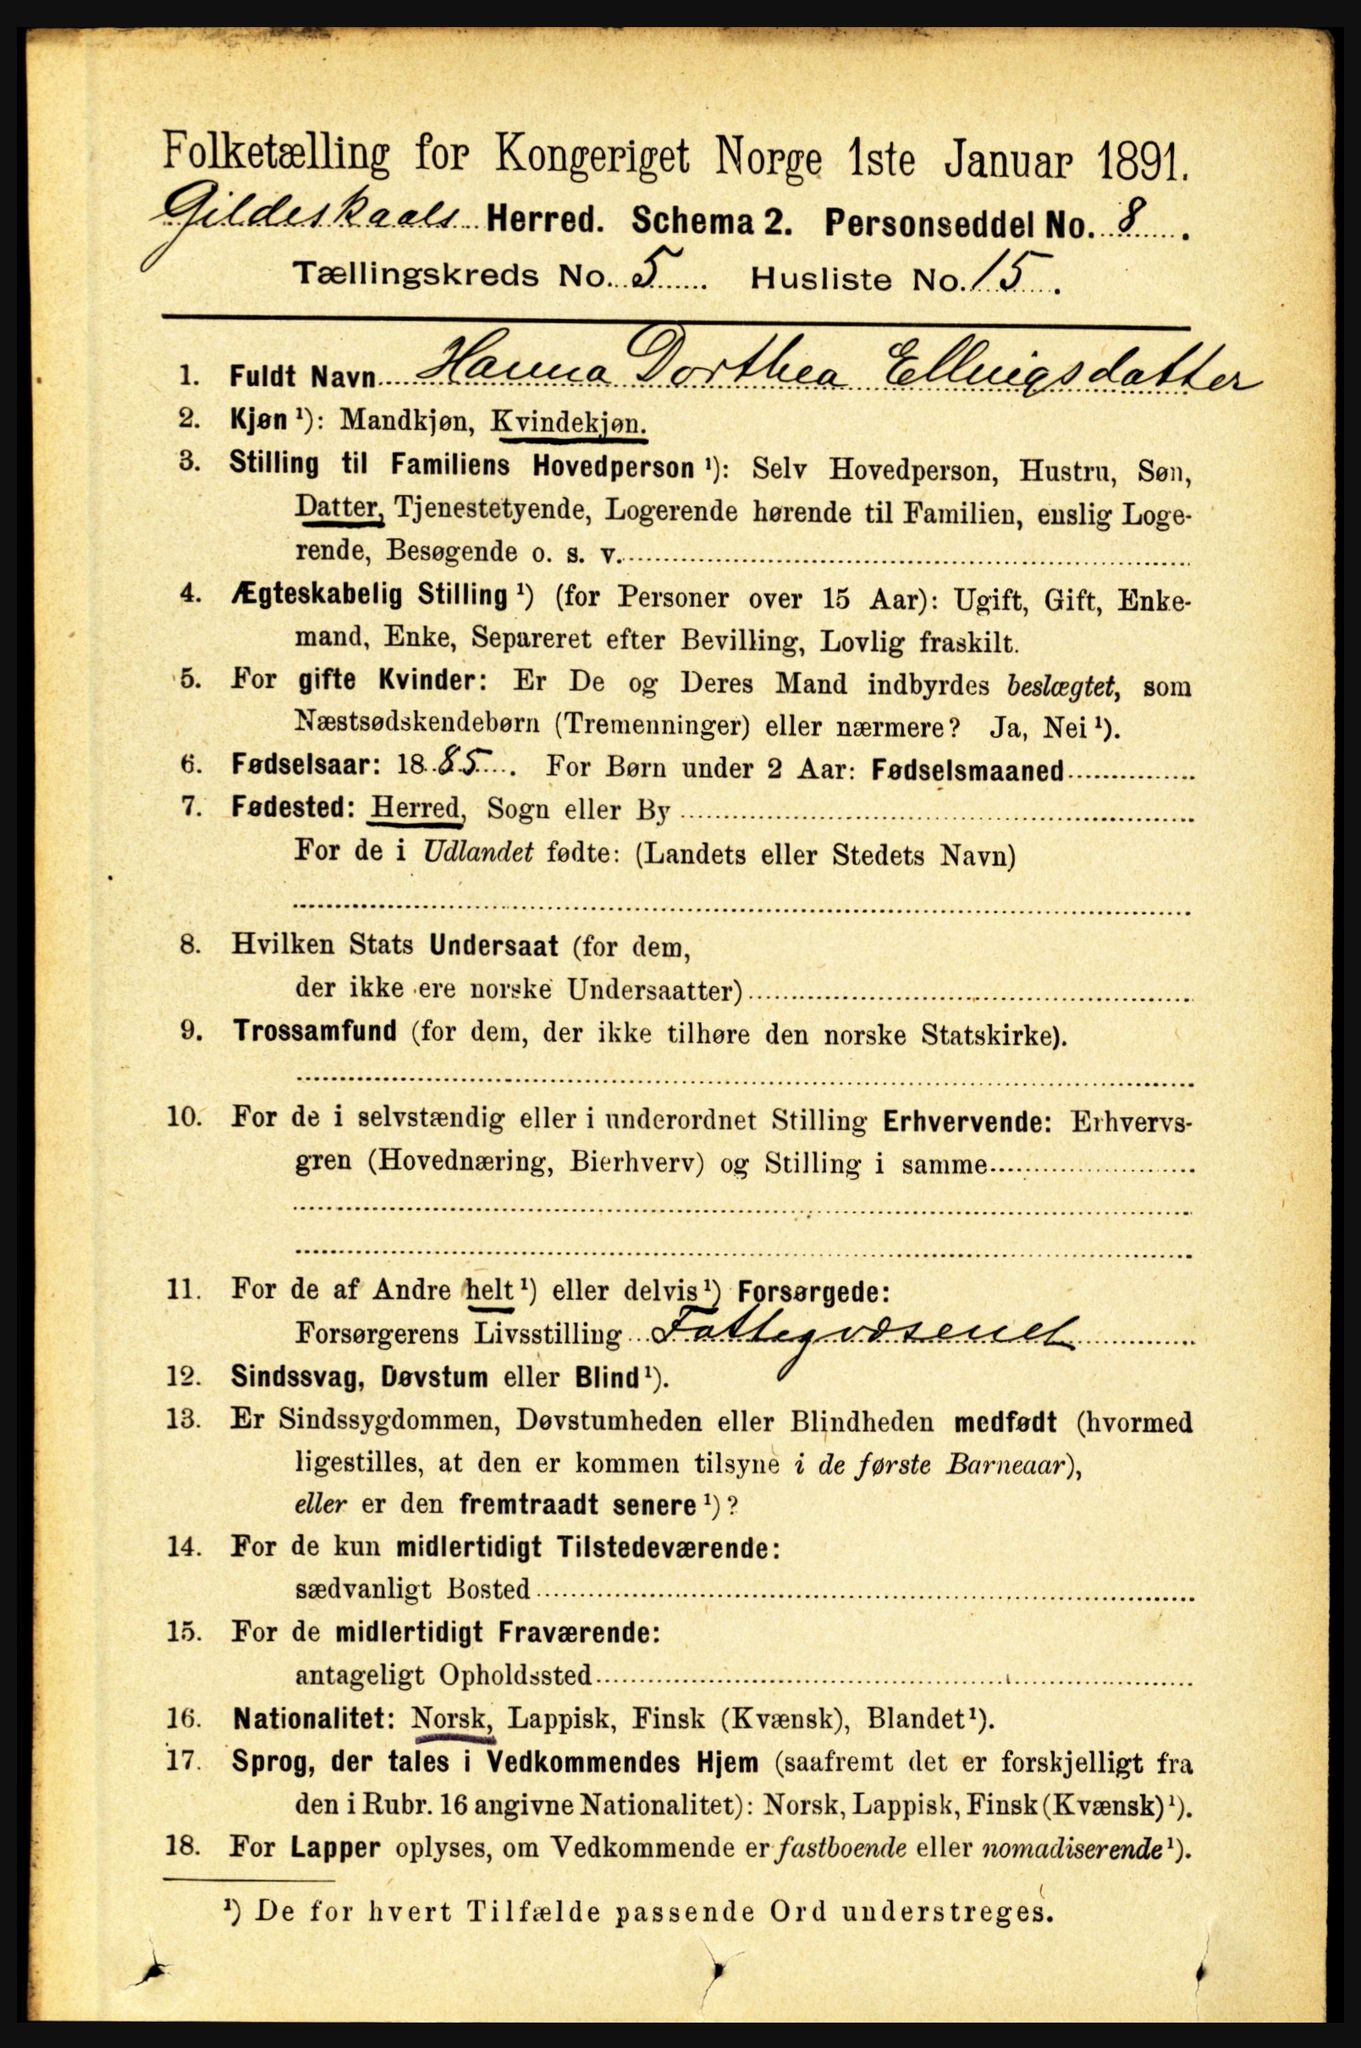 Folketælling for Kongeriget Norge 1ste Januar 1891.
Gildeskaals Herred. Schema 2. Personseddel No. 8.
Tællingskreds No. 5. Husliste No. 15.
1. Fuldt Navn Hanna Dorthea Ellingsdatter
2. Kjøn ¹): Mandkjøn, Kvindekjøn.
3. Stilling til Familiens Hovedperson ¹): Selv Hovedperson, Hustru, Søn,
Datter, Tjenestetyende, Logerende hørende til Familien, enslig Loge-
rende, Besøgende o. s. v.
4. Ægteskabelig Stilling ¹) (for Personer over 15 Aar): Ugift, Gift, Enke-
mand, Enke, Separeret efter Bevilling, Lovlig fraskilt.
5. For gifte Kvinder: Er De og Deres Mand indbyrdes beslægtet, som
Næstsødskendebørn (Tremenninger) eller nærmere? Ja, Nei ¹).
6. Fødselsaar: 1885. For Børn under 2 Aar: Fødselsmaaned
7. Fødested: Herred, Sogn eller By
For de i Udlandet fødte: (Landets eller Stedets Navn)
8. Hvilken Stats Undersaat (for dem,
der ikke ere norske Undersaatter)
9. Trossamfund (for dem, der ikke tilhøre den norske Statskirke).
10. For de i selvstændig eller i underordnet Stilling Erhvervende: Erhvervs-
gren (Hovednæring, Bierhverv) og Stilling i samme
11. For de af Andre helt ¹) eller delvis ¹) Forsørgede:
Forsørgerens Livsstilling Fattigvæsenet
12. Sindssvag, Døvstum eller Blind ¹).
13. Er Sindssygdommen, Døvstumheden eller Blindheden medfødt (hvormed
ligestilles, at den er kommen tilsyne i de første Barneaar),
eller er den fremtraadt senere ¹)?
14. For de kun midlertidigt Tilstedeværende:
sædvanligt Bosted
15. For de midlertidigt Fraværende:
antageligt Opholdssted
16. Nationalitet: Norsk, Lappisk, Finsk (Kvænsk), Blandet ¹).
17. Sprog, der tales i Vedkommendes Hjem (saafremt det er forskjelligt fra
den i Rubr. 16 angivne Nationalitet): Norsk, Lappisk, Finsk (Kvænsk) ¹).
18. For Lapper oplyses, om Vedkommende er fastboende eller nomadiserende ¹).
¹) De for hvert Tilfælde passende Ord understreges.